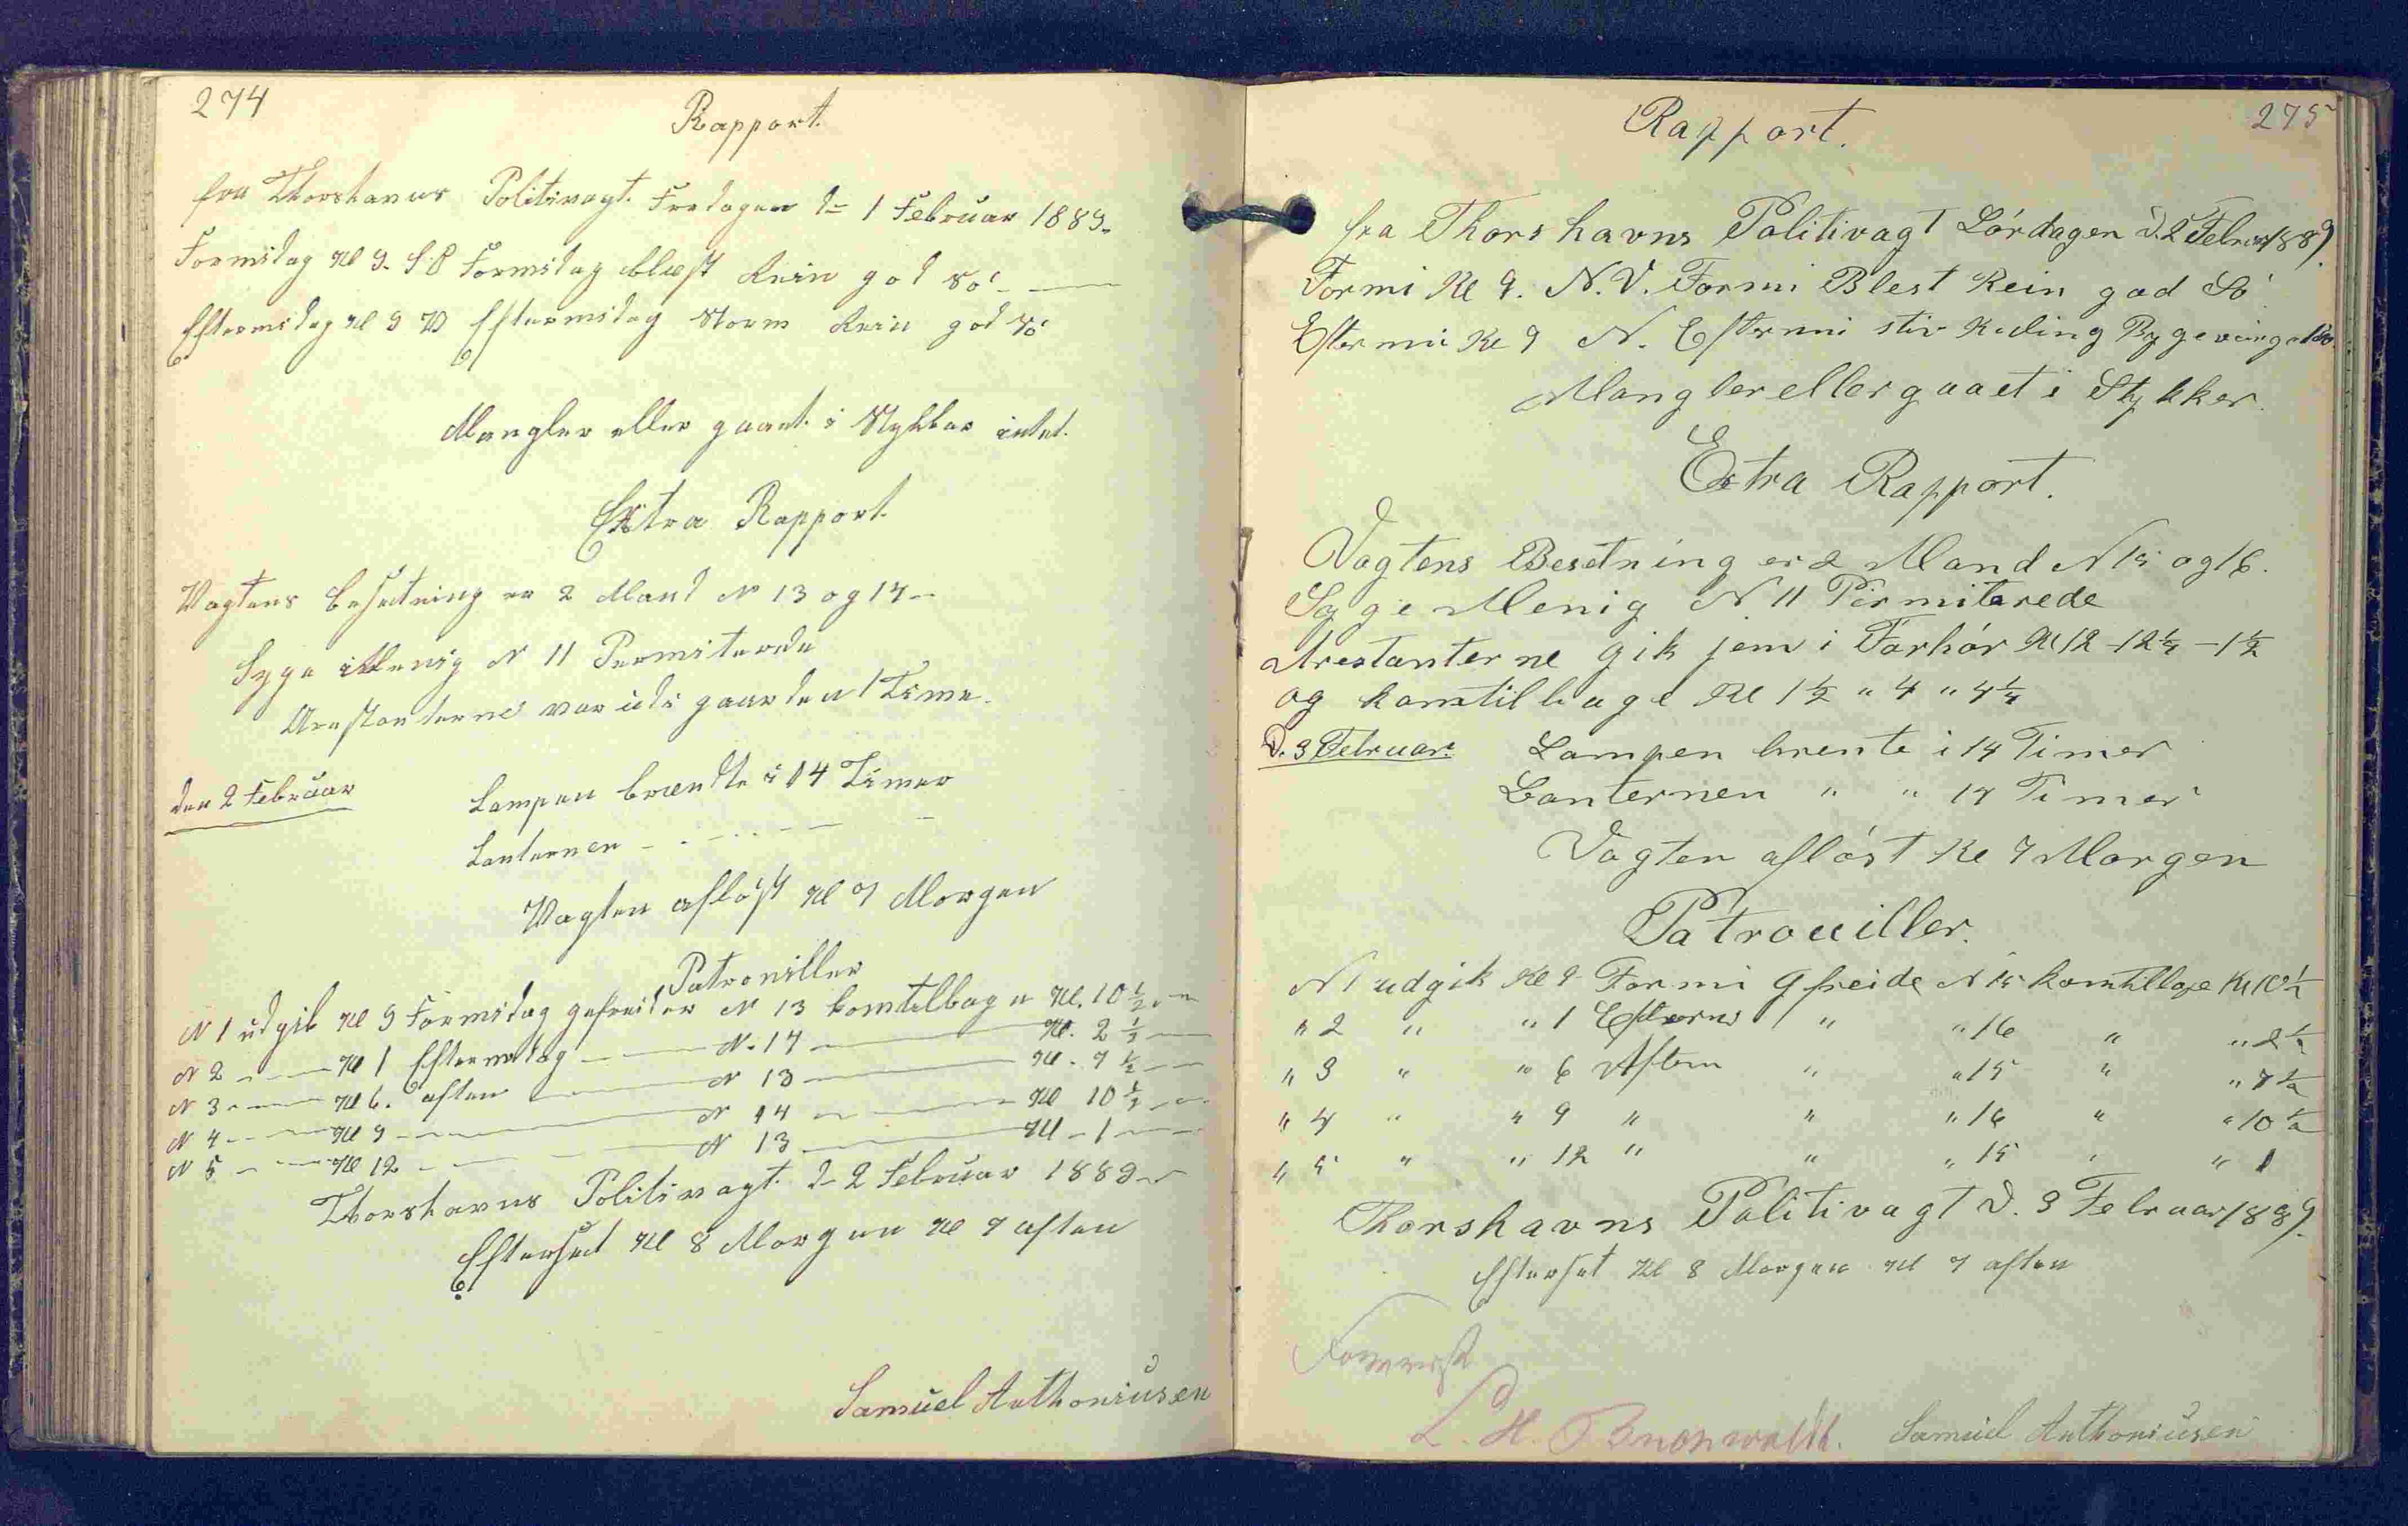 274
Rapport.
fra Thorshavns Politivagt. Fredagen d 1 Februar 1889.
Formidag Kl 9. S.O Formidag blæst Rein god Sö
Eftermidag Kl 9 V Eftermidag Storm Rein god Sö
Mangler eller gaaet i Stykker intet.
Extra Rapport
Vagtens besetning er 2 Mand N 13 og 14
Syge Menig N 11 Permiterede
Arestanterne var ude i gaarden 1 Time.
den 2 Februar
Lampen brændte i 14 Timer
Lanternen
Vagten aflöst Kl 7 Morgen
Patrouiller
N 1 udgik Kl 9 Formidag gefreider N 13 komtilbage Kl. 10 1/2
N 2 — Kl 1 Eftermidag — N. 14 — Kl. 2 1/2
N 3 — Kl 6. aften — N 13 — Kl. 7 1/2
N 4 — Kl 9 — N 14 — Kl 10 1/2
N 5 — Kl 12 — N 13 — Kl 1
Thorshavns Politivagt d 2 Februar 1889
Efterset Kl 8 Morgen Kl 7 aften
Samuel Anthoniusen
275
Rapport.
fra Thorshavns Politivagt Lördagen d. 2 Februar 1889.
Formi Kl 9. N.V. Formi Blest Rein god Sö
Eftermi Kl 9 N. Eftermi stiv Kuling
Mangler eller gaaet i Stykker.
Extra Rapport.
Vagtens Besetning er 2 Mand N 15 og 16.
Syge Menig N 11 Permiterede
Arestanterne gik jem i Forhör Kl 12 - 12 1/4 - 1 1/2
og komtilbage Kl 1 1/2 " 4 " 4 1/4
D. 3 Februar.
Lampen brente i 14 Timer
Lanternen " " 14 Timer
Vagten aflöst Kl 7 Morgen
Patrouiller.
N 1 udgik Kl 9 Formi gfreide N 15 komtilbage Kl 10 1/2
" 2 " " 1 Efterm " " 16 " " 2 1/2
" 3 " " 6 Aften " " 15 " " 7 1/2
" 4 " " 9 " " " 16 " " 10 1/2
" 5 " " 12 " " " 15 " " 1
Thorshavns Politivagt D. 3 Februar 1889.
Efterset Kl 8 Morgen Kl 7 aften
Forevist
L. H.
Samuel Anthoniusen